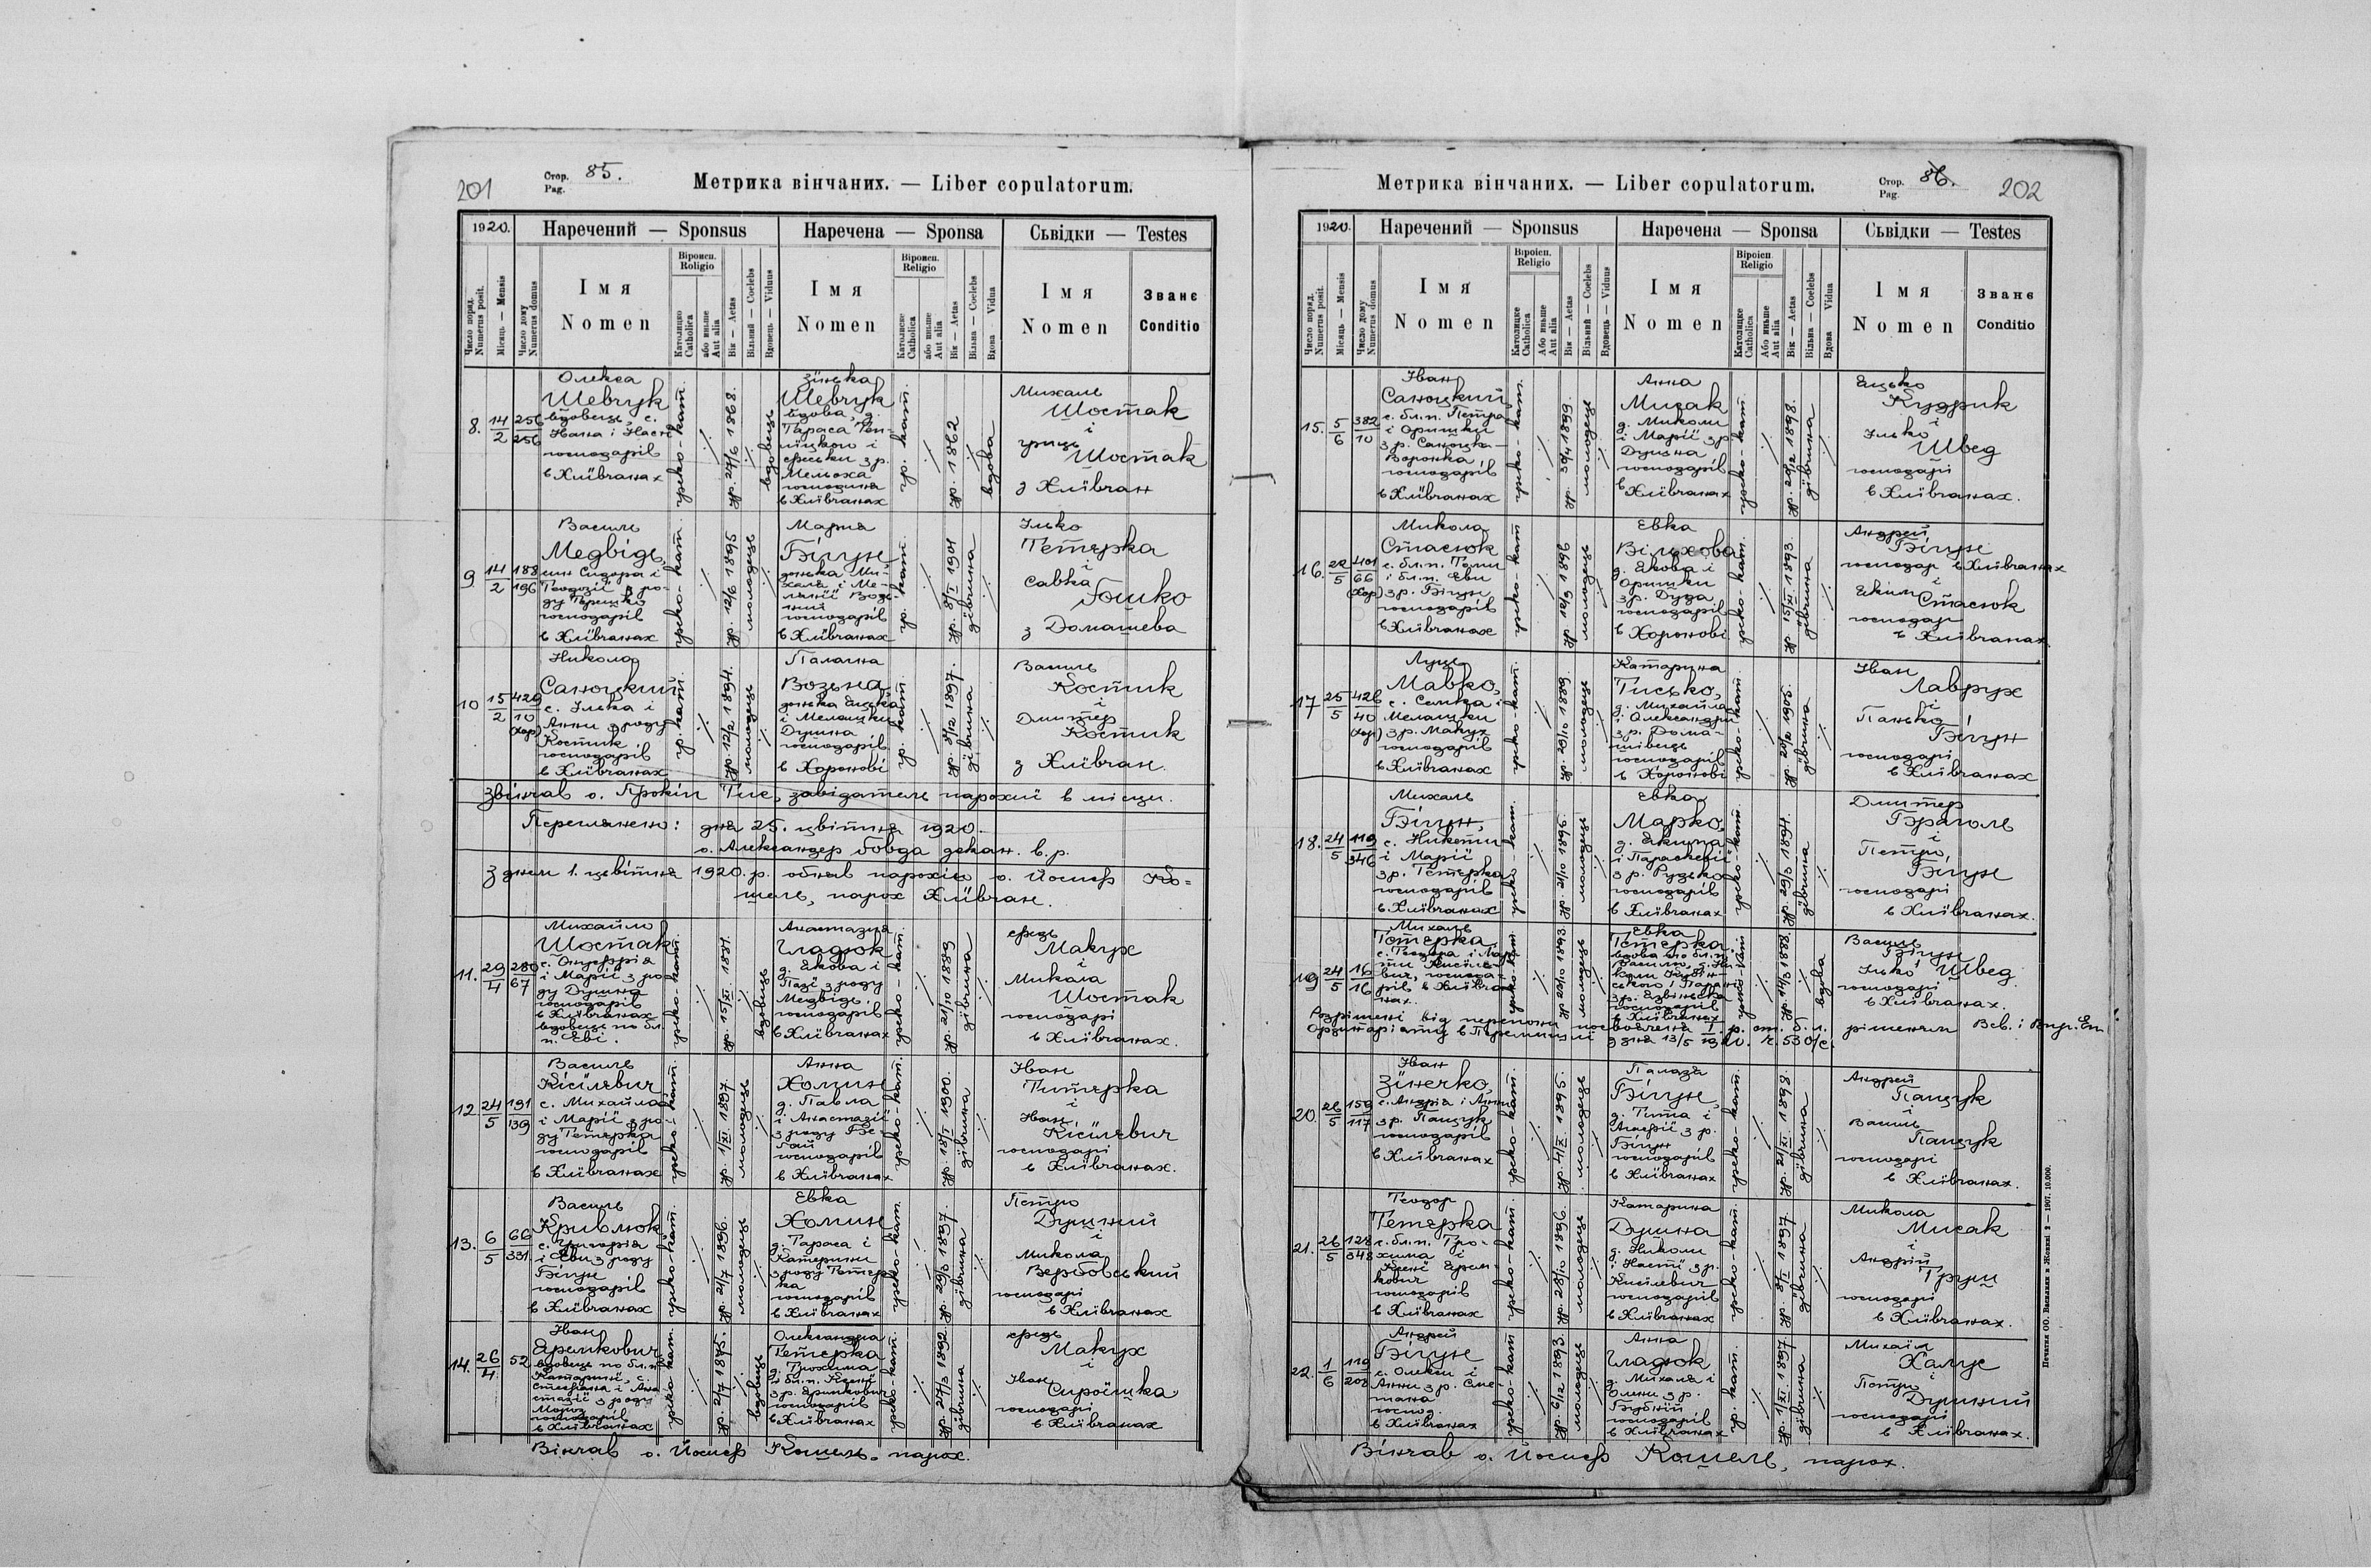 201
Стор. Pag. 85.
Метрика вінчаних. — Liber copulatorum.
1920.
Наречений — Sponsus
Наречена — Sponsa
Сьвідки — Testes
Число поряд. Numerus posit.
Місяць — Mensis
Число дому Numerus domus
Імя Nomen
Віроисп. Religio
Католицко Catholica
або иньше Aut alia
Вік — Aetas
Вільний — Coelebs
Вдовець — Viduus
Імя Nomen
Віроисп. Religio
Католиске Catholica
або иньше Aut alia
Вік — Aetas
Вільна — Coelebs
Вдова Vidua
Імя Nomen
Званє Conditio
8. 14/2 256/256
Олекса
Шевчук
вдовець, с.
господарів
в Хлївчанах
греко-кат.
ур. 27/6 1868.
вдовець
Зїнька
Шевчук
вдова, д.
Тараса
в Хлївчанах
гр. кат.
ур. 1862
вдова
Михаль
Шостак
і
Гриць
Шостак
з Хлївчан
9 14/2 188/196
Василь
Медвідь,
син Сидора і
Теодозії з ро-
ду
господарів
в Хлївчанах
греко-кат.
ур. 12/6 1895
молодець
Мария
Біґун,
донька Ми-
хала і Ме-
лянії
господарів
в Хлївчанах
гр. кат.
ур. 8/I 1901
дівчина
Ілько
Тетерка
і
Савка
Гошко
з Домашева
10 15/2 429/10 (Хор)
Никола
Саноцкий
с. Ілька і
Анни з роду
Костик
господарів
в Хлївчанах
гр. кат.
ур. 12/12 1894.
молодець
Палагна
Возьна
донька Єцька
і Мелашки
Душна
господарів
в Хоронові
гр. кат.
ур. 8/12 1897.
дівчина
Василь
Костик
і
Дмитер
Костик
з Хлївчан.
Звінчав о. Прокіп Тис, завідатель парохії в місци.
Переглянено: дня 25. цвітня 1920.
о. Александер Бовда декан. в.р.
З днем 1. цвітня 1920. р. обняв парохію о. Йосиф Ко-
шель, парох Хлївчан.
11. 29/4 280/67
Михайло
Шостак
с. Онуфрія
і Марії з ро-
ду Душна
господарів
в Хлївчанах
вдовець по бл.
п. Еві.
греко-кат.
ур. 15/XI 1881.
вдовець
Анастазия
Гладюк
д. Якова і
Пазї з роду
Медвідь
господарів
в Хлївчанах
греко-кат.
ур. 21/10 1889
дівчина
Федь
Макух
і
Микола
Шостак
господарі
в Хлївчанах.
12. 24/5 191/139
Василь
Кісїлевич
с. Михайла
і Марії з ро-
ду Тетерка
господарів
в Хлївчанах
греко-кат.
ур. 1/XI. 1897
молодець
Анна
Хомин
д. Павла
і Анастазії
з роду
господарів
в Хлївчанах
греко-кат.
ур. 18/I 1900.
дівчина
Іван
Титерка
і
Іван
Кісїлевич
господарі
в Хлївчанах.
13. 6/5 66/331
Василь
Кривлюк
с. Григорія
і Еви з роду
Біґун
господарів
в Хлївчанах
греко-кат.
ур. 21/7 1896.
молодець
Евка
Хомин
д. Тараса і
Катерини
з роду Тетер-
ка
господарів
в Хлївчанах
греко-кат.
ур. 29/3 1897.
дівчина
Петро
Душний
і
Микола
Вербовський
господарі
в Хлївчанах
14. 26/4 52
Іван
Яремкович
вдовець по бл.п.
Катарині, с.
Стефана і Ана-
стазії з роду
Мороз
господарів
в Хлївчанах
греко-кат.
ур. 2/7 1875.
вдовець
Олександра
Тетерка
д. Трохима
і бл.п. Ксенї
з р. Яримкович
господарів
в Хлївчанах
греко-кат.
ур. 27/3 1892.
дівчина
Федь
Макух
і
Іван
Сироїшка
господарі
в Хлївчанах
Вінчав о. Йосиф Кошель. парох.
Метрика вінчаних. — Liber copulatorum.
Стор. Pag. 86.
202
1920.
Наречений — Sponsus
Наречена — Sponsa
Сьвідки — Testes
Число поряд. Numerus posit.
Місяць — Mensis
Число дому Numerus domus
Імя Nomen
Віроісп. Religio
Католицке Catholica
Або иньше Aut alia
Вік — Aetas
Вільний — Coelebs
Вдовець — Viduus
Імя Nomen
Віроісп. Religio
Католицке Catholica
Або иньше Aut alia
Вік — Aetas
Вільна — Coelebs
Вдова Vidua
Імя Nomen
Званє Conditio
15. 5/6 382/10
Іван
Саноцкий,
с. бл.п. Петра
і Оришки
з р. Саноцка-
Воронка
господарів
в Хлївчанах
греко-кат.
ур. 30/4 1899.
молодець
Анна
Мисак
д. Миколи
і Марії з р.
Душна
господарів
в Хлївчанах
греко-кат.
ур. 28/12 1898.
дівчина
Яцько
Кудрик
і
Ілько
Швед
господарі
в Хлївчанах.
16. 22/5 401/66 (Хор)
Микола
Стасюк
с. бл.п. Томи
і бл.п. Еви
з р. Біґун
господарів
в Хлївчанах
греко-кат
ур. 12/9 1896
молодець
Евка
Вільхова
д. Якова і
Оришки
з р. Дуда
господарів
в Хоронові
греко-кат.
ур. 15/XI 1893.
дівчина
Андрей
Біґун
господар в Хлївчанах
і
Яким
Стасюк
господар
в Хлївчанах.
17 25/5 426/40 (Хор)
Луць
Мавко,
с. Семка і
Мелашки
з р. Макух
господарів
в Хлївчанах
греко-кат.
ур. 20/10 1889.
молодець
Катарина
Тисько,
д. Михайла
і Олександри
з р. Дома-
шівець
господарів
в Хоронові
греко-кат.
ур. 20/12 1905.
дівчина
Іван
Лаврух
і
Панько
Біґун
господарі
в Хлївчанах
18. 24/5 119/346
Михаль
Біґун,
с. Никети
і Марії
з р. Тетерка
господарів
в Хлївчанах
греко-кат.
ур. 21/10 1896.
молодець
Евка
Марко,
д. Якима
і Параскевії
з р. Рудько
господарів
в Хлївчанах
греко-кат.
ур. 29/3 1894.
дівчина
Дмитер
Браголь
і
Петро
Біґун
господарі
в Хлївчанах.
19 24/5 16/16
Михаль
Тетерка,
с. Теодора
греко-кат.
1893.
молодець
Евка
Тетерка
вдова по бл.п.
господарів
в Хлївчанах
греко-кат.
ур. 14/3 1888.
вдова
Василь
Біґун
Ілько Швед
господарі
в Хлївчанах.
Розрішені від перепони посвоячення І. р. ст. б. л. рішенням Всв. і Впр. Еп.
Ординаріяту в Перемишлі з дня 13/5 ч. 530/с.
20. 26/5 159/117
Іван
Зїнечко,
с. Андрія і Анни
з р. Пащук
господарів
в Хлївчанах
греко-кат.
ур. 4/IX. 1895.
молодець
Палазя
Біґун,
д. Тита і
Агафії з р.
Біґун
господарів
в Хлївчанах
греко-кат.
ур. 21/XI. 1898.
дівчина
Андрей
Пащук
і
Василь
Пащук
господарі
в Хлївчанах.
21. 26/5 128/348
Теодор
Тетерка
с. бл.п. Тро-
хима і
Ксенї Ярем-
кович
господарів
в Хлївчанах
греко-кат.
ур. 28/10 1896.
молодець
Катарина
Душна
д. Николи
і Настї з р.
Кисїлевич
господарів
в Хлївчанах
греко-кат.
ур. 8/I 1897.
дівчина
Микола
Мисак
і
Андрій
Груш
господарі
в Хлївчанах.
22. 1/6 119/202
Андрей
Біґун
с. Олекси і
Анни з р. Сме-
тана
господ.
в Хлївчанах
греко-кат
ур. 6/12 1893.
молодець
Анна
Гладюк
д. Михаля і
Олени з р.
господарів
в Хлївчанах
гр. кат.
ур. 1/XI. 1897
дівчина
Михайл
Халус
і
Петро
Душний
господарі
в Хлївчанах.
Вінчав о. Йосиф Кошель, парох.